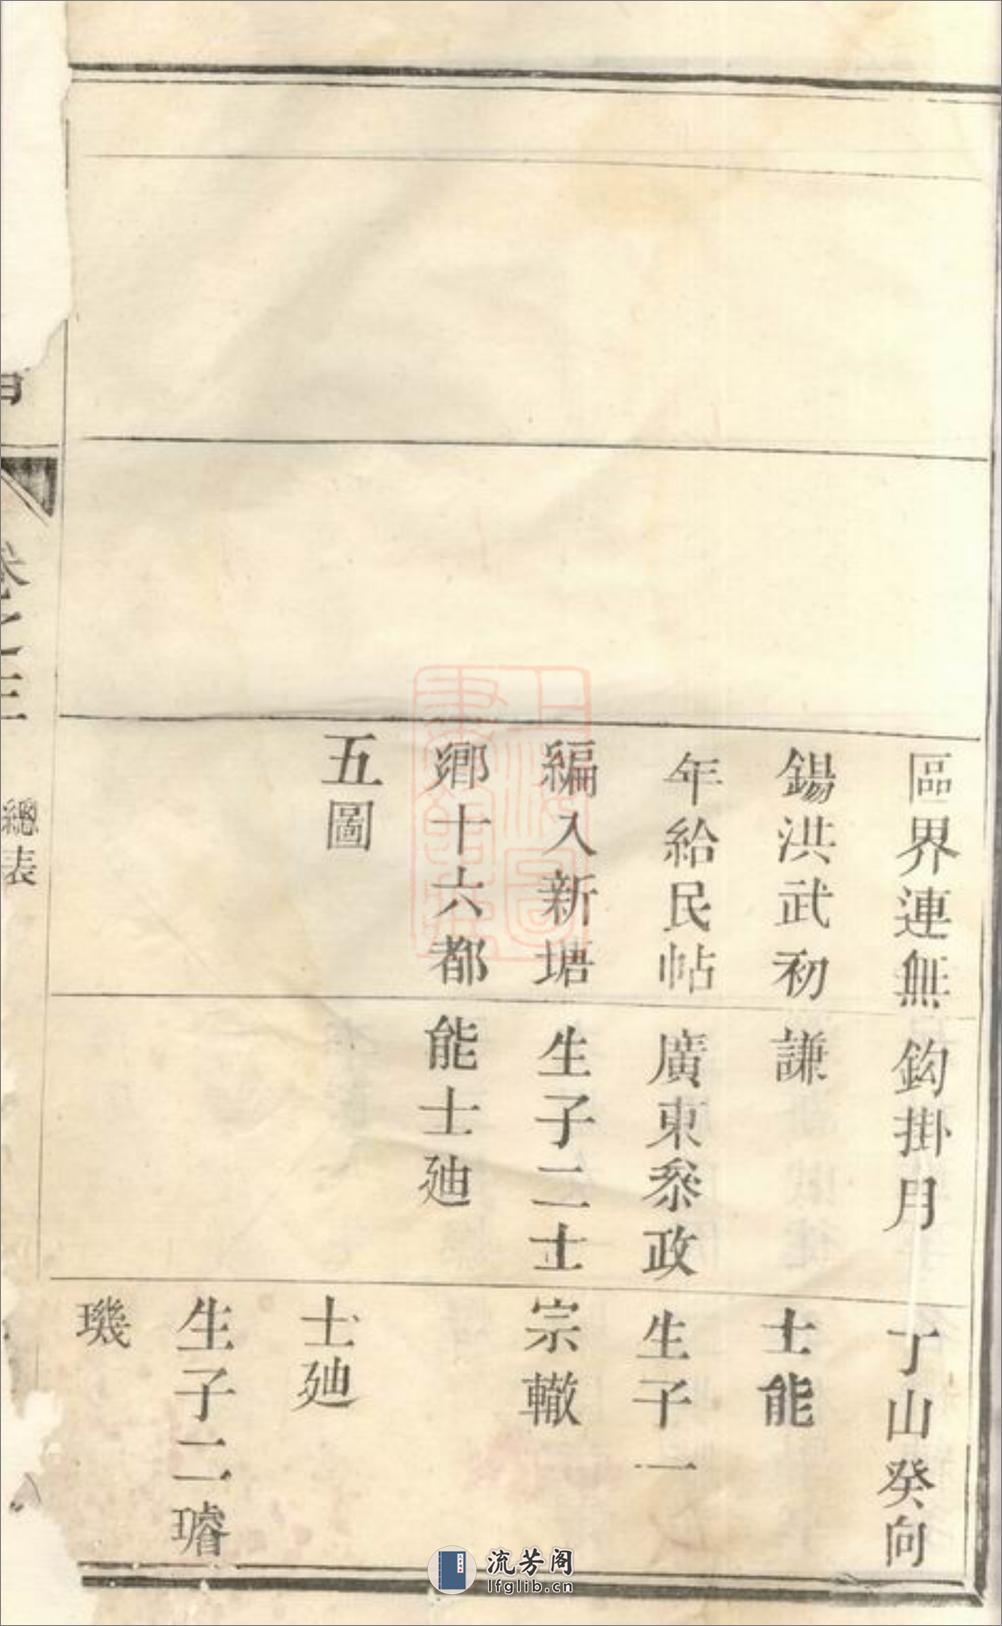 區界連無
錫洪武初
年給民帖
編入新塘
鄉十六都
五圖
鈎掛月
謙
廣東叅政
生子二士
能士廸
丁山癸向
士能
生子一
宗轍
士廸
生子二璿
璣
卷之三
總表
流芳阁
lfglib.cn